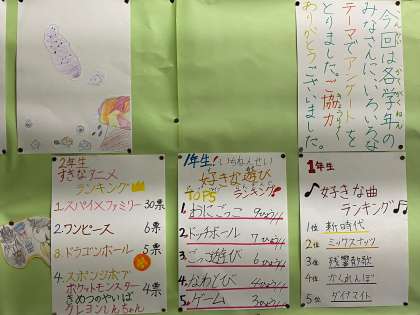 今回は各学年の
みなさんに、いろいろな
テーマでアンケートを
とりました。ご協力
ありがとうございました。
2年生
すきなアニメ
ランキング
1.スパイ×ファミリー 30票
2.ワンピース 6票
3.ドラゴンボール 5票
4.スポンジボブ
ポケットモンスター 4票
きめつのやいば
クレヨンしんちゃん
1年生!(いちねんせい)
好きな遊び
TOP5 ランキング!
1.おにごっこ 9ひょう
2.ドッチボール 7ひょう
3.ごっこ遊び 6ひょう
4.なわとび 4ひょう
5.ゲーム 3ひょう
1年生
好きな曲
ランキング
1位 新時代
2位 ミックスナッツ
3位 残響散歌
4位 かくれんぼ
5位 ダイナマイト